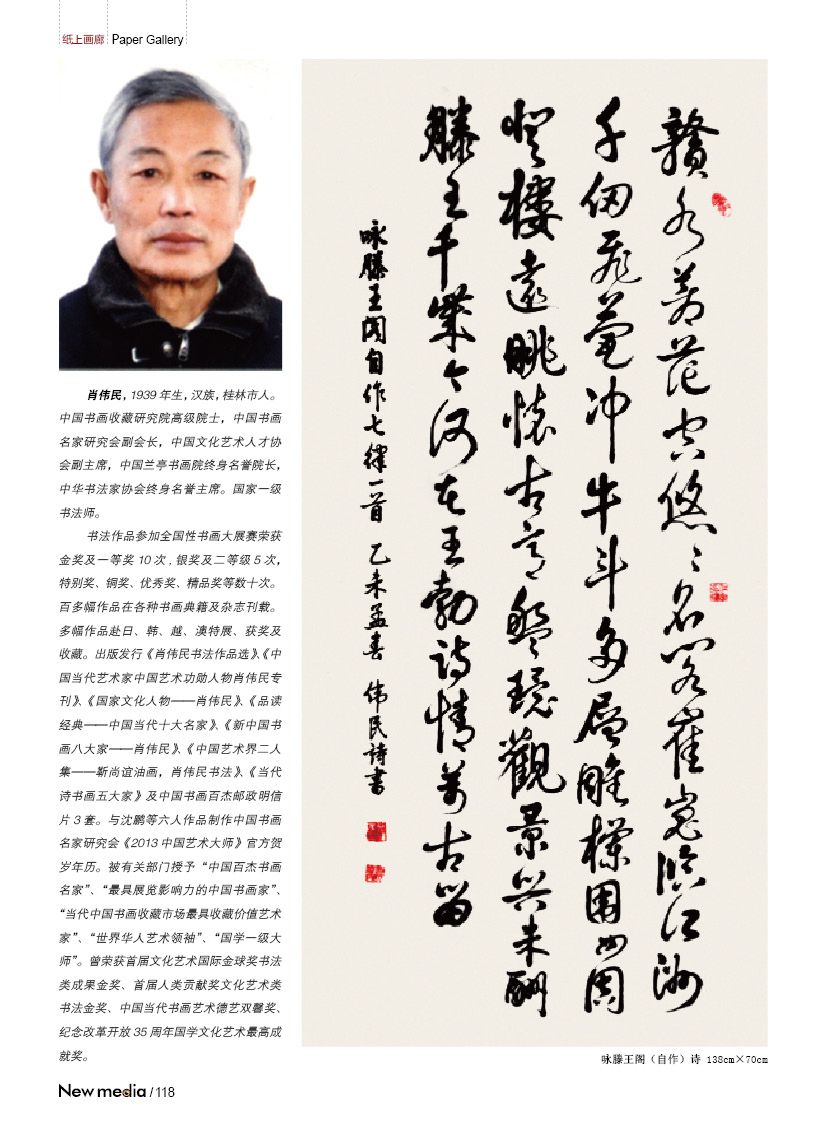 纸上画廊 Paper Gallery
肖伟民，1939 年生，汉族，桂林市人。
中国书画收藏研究院高级院士，中国书画
名家研究会副会长，中国文化艺术人才协
会副主席，中国兰亭书画院终身名誉院长，
中华书法家协会终身名誉主席。国家一级
书法师。
书法作品参加全国性书画大展赛荣获
金奖及一等奖 10 次 , 银奖及二等级 5 次，
特别奖、铜奖、优秀奖、精品奖等数十次。
百多幅作品在各种书画典籍及杂志刊载。
多幅作品赴日、韩、越、澳特展、获奖及
收藏。出版发行《肖伟民书法作品选》、《中
国当代艺术家中国艺术功勋人物肖伟民专
刊》、《国家文化人物——肖伟民》、《品读
经典——中国当代十大名家》、《新中国书
画八大家——肖伟民》、《中国艺术界二人
集——靳尚谊油画，肖伟民书法》、《当代
诗书画五大家》及中国书画百杰邮政明信
片 3 套。与沈鹏等六人作品制作中国书画
名家研究会《2013 中国艺术大师》官方贺
岁年历。被有关部门授予“中国百杰书画
名家”、“最具展览影响力的中国书画家”、
“当代中国书画收藏市场最具收藏价值艺术
家”、“世界华人艺术领袖”、“国学一级大
师”。曾荣获首届文化艺术国际金球奖书法
类成果金奖、首届人类贡献奖文化艺术类
书法金奖、中国当代书画艺术德艺双馨奖、
纪念改革开放 35 周年国学文化艺术最高成
就奖。
赣水苍茫空悠〻名阁崔嵬临江洲
千仞飛甍冲牛斗多层雕樑围四周
登樓遠眺懷古意盤環觀景兴未酬
滕王千業今何在王勃诗情萬古留
咏滕王阁自作七律一首 乙未孟春 伟民诗書
咏滕王阁（自作）诗 138cm×70cm
New media / 118